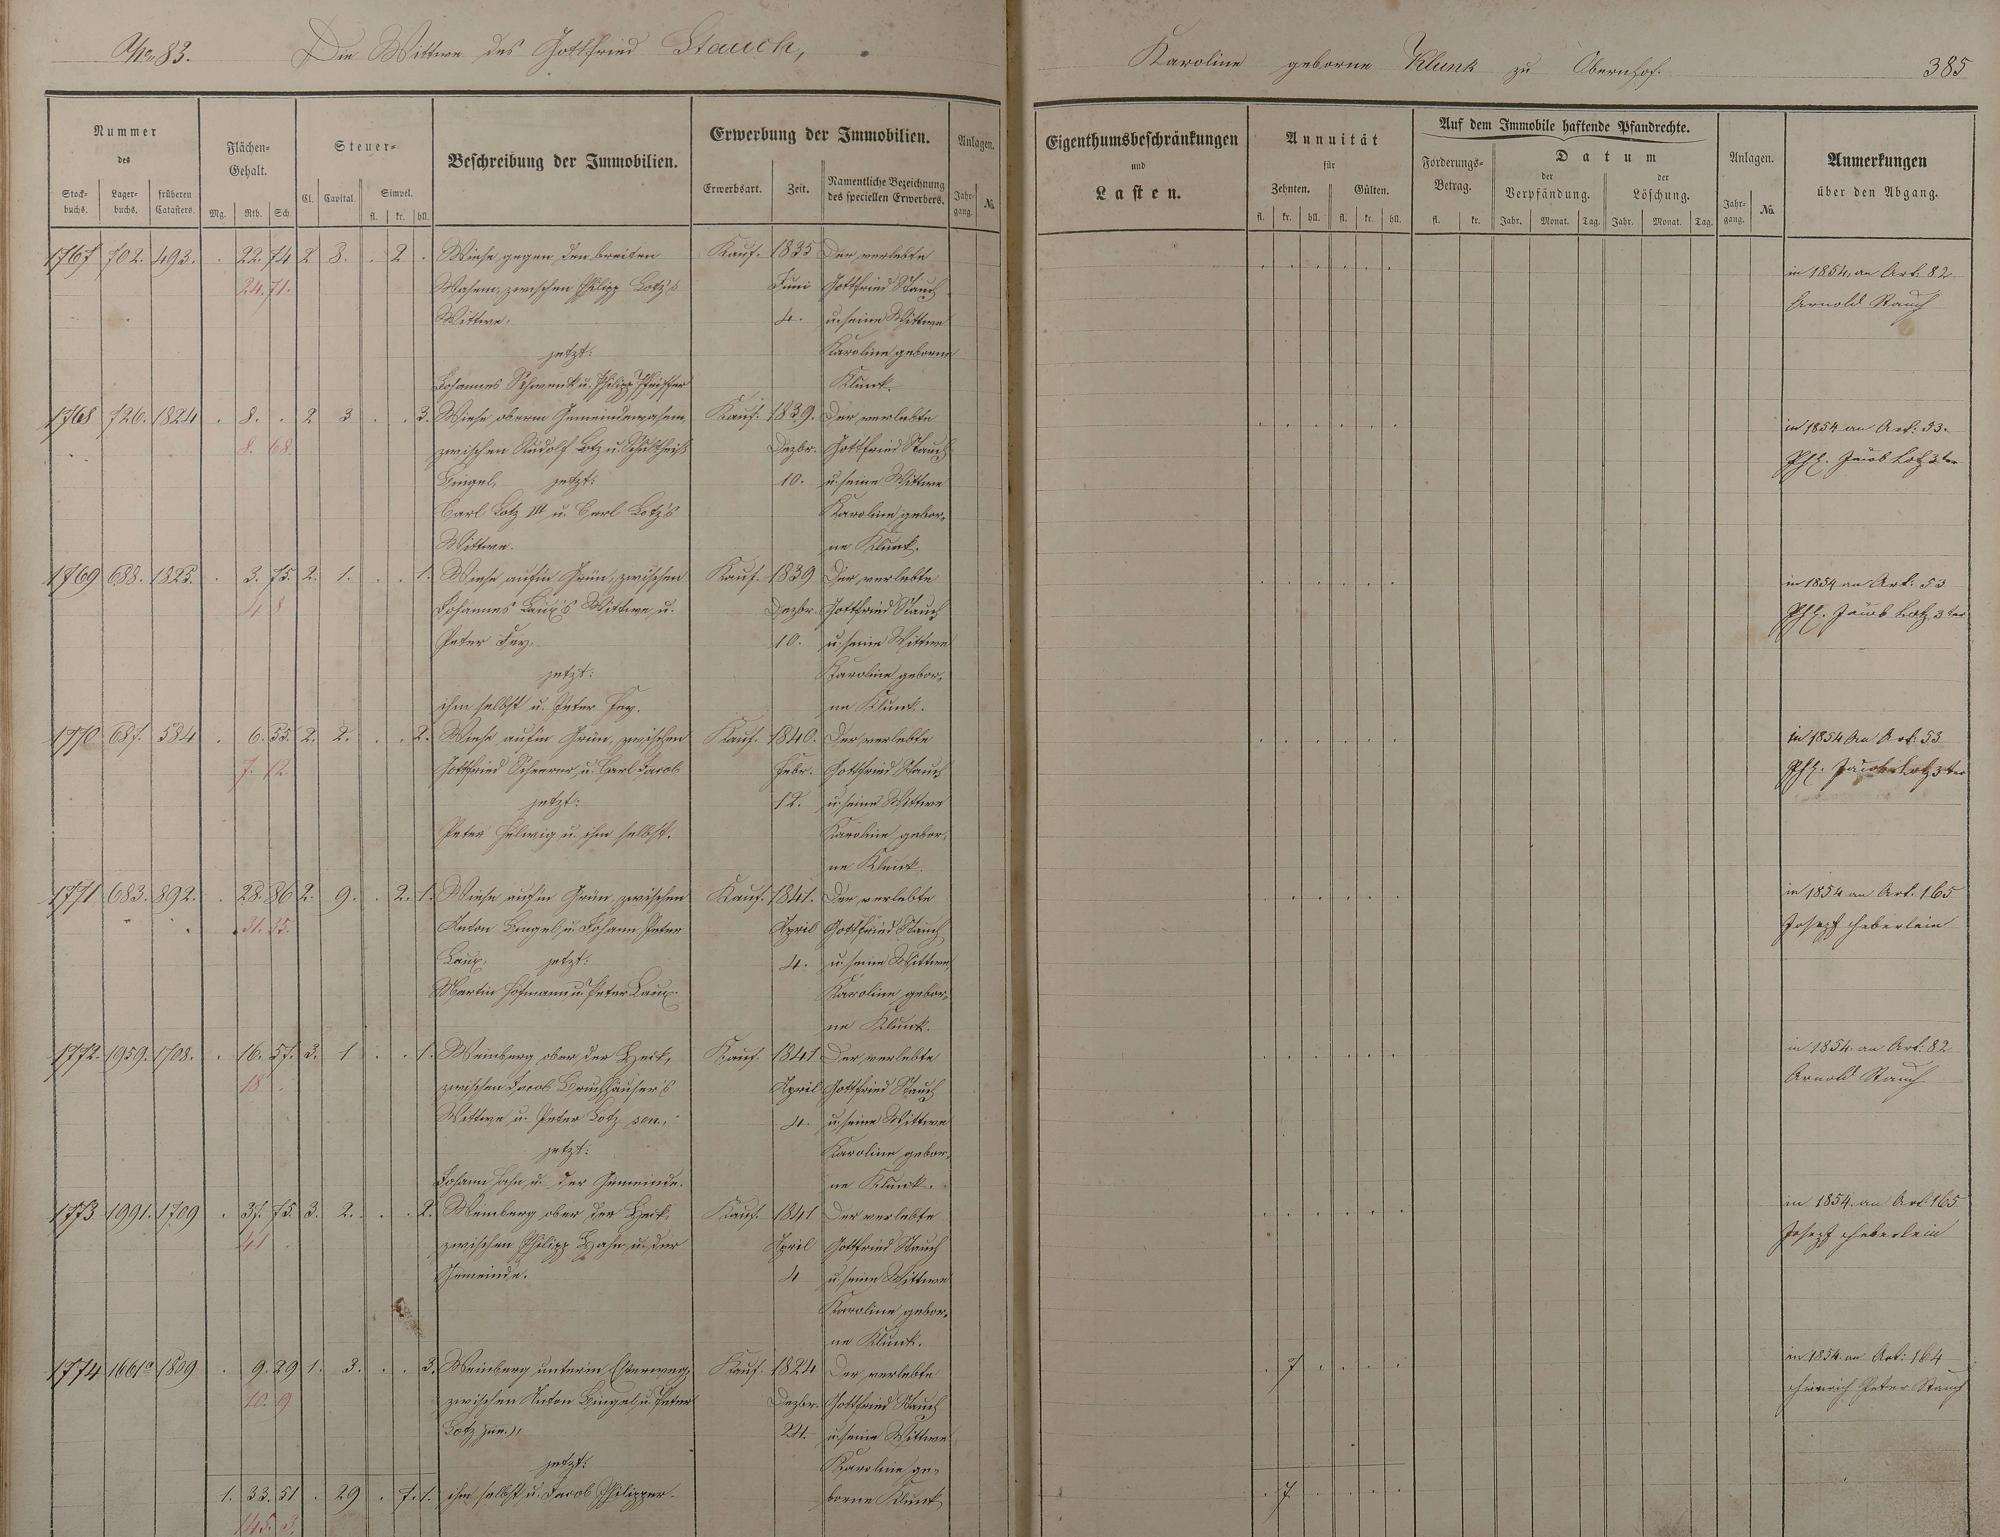 No. 83. Die Wittwe des Gottfried Stauch, Karoline geborne Klunk zu Obernhof. 385
Nummer des
Stockbuchs. Lagerbuchs. früheren Catasters.
Flächen-Gehalt.
Mg. Rth. Sch.
Steuer-
Cl. Capital. Simpel. fl. kr. hll.
Beschreibung der Immobilien.
Erwerbung der Immobilien.
Erwerbsart. Zeit. Namentliche Bezeichnung des speciellen Erwerbers.
Anlagen.
Jahrgang. No.
Eigenthumsbeschränkungen und Lasten.
Annuität für
Zehnten. Gülten.
fl. kr. hll. fl. kr. hll.
Auf dem Immobile haftende Pfandrechte.
Forderungs-Betrag. fl. kr.
Datum
der Verpfändung. der Löschung.
Jahr. Monat. Tag. Jahr. Monat. Tag.
Anlagen.
Jahrgang. No.
Anmerkungen über den Abgang.
1767 702. 493. . 22. 74 2 8. . 2 . Wiese gegen den breiten Kauf. 1835 Der verlebte
24. 71. Wasem, zwischen Philipp Lotz's Juni Gottfried Stauch
Wittwe, 4. u. seine Wittwe
jetzt: Karoline geborne
Johannes Schwenk u. Philipp Pfeiffer Klunk.
in 1854 an Art. 82
Arnold Stauch
1768 726. 1824 . 8. . 2 3 . . 3. Wiese oberm Gemeindewasem, Kauf. 1839. Der verlebte
8. 68. zwischen Rudolf Lotz u. Schultheiß Dezbr. Gottfried Stauch
Bingel, jetzt: 10. u. seine Wittwe
Carl Lotz III u. Carl Lotz's Karoline gebor-
Wittwe. ne Klunk.
in 1854 an Art: 53.
Phl. Jacob Lotz 3ter
1769 688. 1825. . 3. 75. 2. 1. . . 1. Wiese auf'm Grün, zwischen Kauf. 1839 Der verlebte
4 8 Johannes Laux's Wittwe u. Dezbr. Gottfried Stauch
Peter Fay, 10. u. seine Wittwe
jetzt: Karoline gebor-
ihm selbst u. Peter Fay. ne Klunk.
in 1854 an Art: 53
Phl. Jacob Lotz 3ter
1770 687. 584 . 6. 55. 2. 2. . . 2. Wiese auf'm Grün, zwischen Kauf. 1840. Der verlebte
7. 12. Gottfried Scheerer u. Carl Jacob Febr. Gottfried Stauch
jetzt: 12. u. seine Wittwe
Peter Helwig u. ihm selbst. Karoline gebor-
ne Klunk.
in 1854 an Art: 53
Phl. Jacob Lotz 3ter
1771 683. 892. . 28. 86 2. 9. . 2. 1. Wiese auf'm Grün, zwischen Kauf. 1841. Der verlebte
31. 15. Anton Bingel u. Johann Peter April Gottfried Stauch
Laux, jetzt: 4. u. seine Wittwe
Martin Hofmann u. Peter Laux. Karoline gebor-
ne Klunk.
in 1854 an Art. 165
Joseph Heberlein
1772. 1959. 1708. . 16. 57. 3. 1 . . 1. Weinberg ober der Heck, Kauf. 1841 Der verlebte
18 . zwischen Jacob Bruchhäuser's April Gottfried Stauch
Wittwe u. Peter Lotz sen., 4. u. seine Wittwe
jetzt: Karoline gebor-
Johann Hahn u. der Gemeinde. ne Klunk.
in 1854 an Art: 82
Arnold Stauch
1773 1991. 1709 . 37. 75. 3. 2. . . 2. Weinberg ober der Heck, Kauf. 1841 Der verlebte
41 . zwischen Philipp Hahn u. der April Gottfried Stauch
Gemeinde. 4 u. seine Wittwe
Karoline gebor-
ne Klunk.
in 1854 an Art 165
Joseph Heberlein
1774 1661a 1809 . 9. 29 1. 3. . . 3. Weinberg unterm Kauf. 1824 Der verlebte . 7 . . . .
10. 9 zwischen Anton Bingel u. Peter Dezbr. Gottfried Stauch
Lotz jun., 24. u. seine Wittwe
jetzt: Karoline ge-
in 1854 an Art: 164
Heinrich Peter Stauch
1. 33. 51 . 29 . 7. 1. ihm selbst u. Jacob Philipper. borne Klunk . 7. . . . .
145. 3.